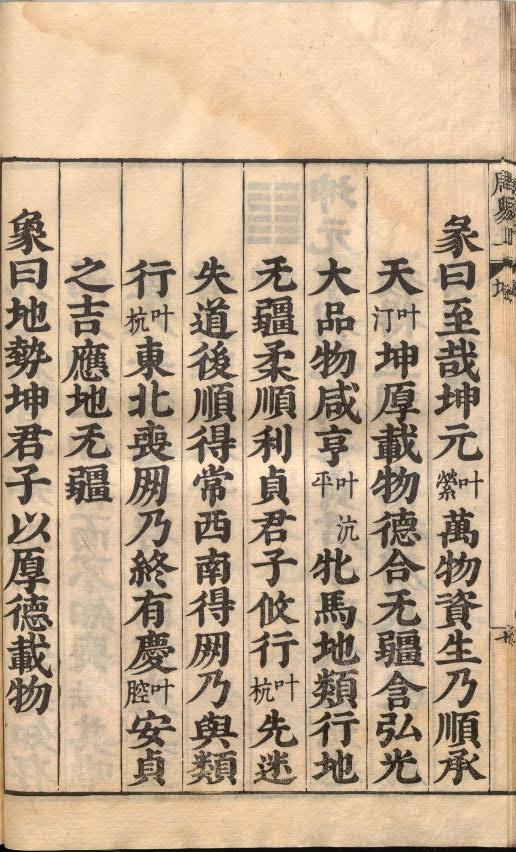 周易上 坤
彖曰至哉坤元叶縈萬物資生乃順承
天叶汀坤厚載物德合无疆含弘光
大品物咸亨叶平沆牝馬地類行地
无疆柔順利貞君子攸行叶杭先迷
失道後順得常西南得朋乃與類
行叶杭東北喪朋乃終有慶叶腔安貞
之吉應地无疆
象曰地勢坤君子以厚德載物